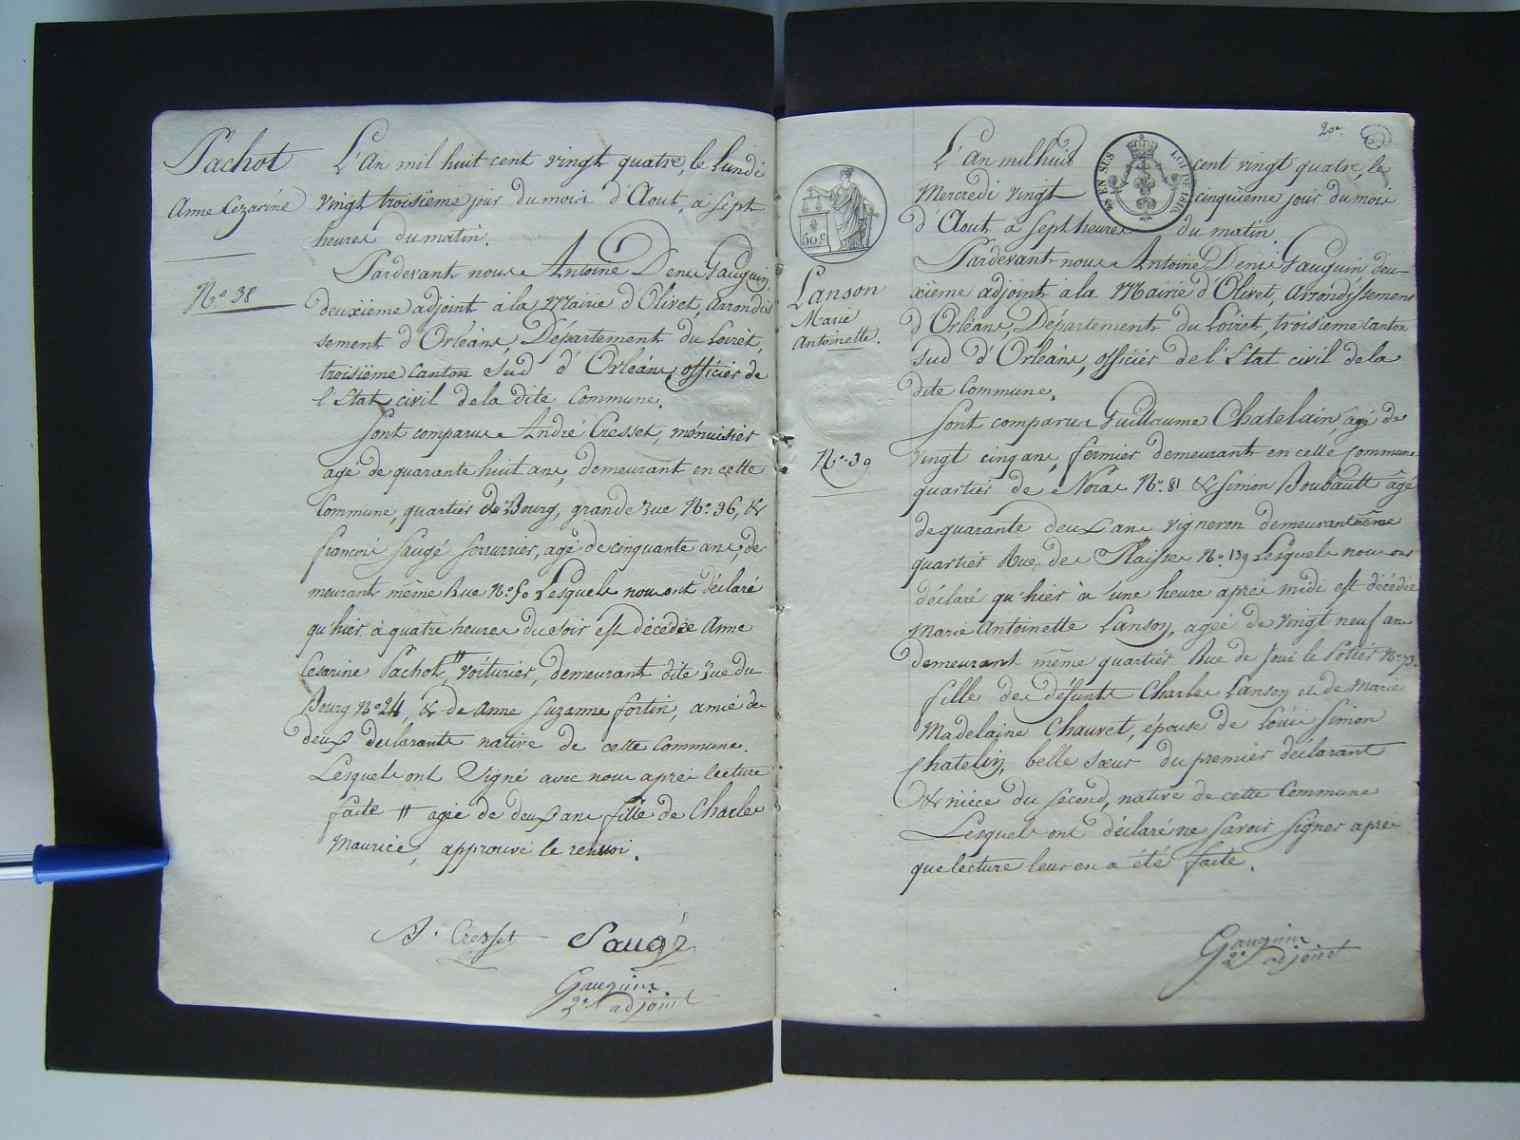 Pachot
Anne Cezarine
N.o 38
L'An mil huit cent vingt quatre, le Lundi
vingt troisième jour du mois d'Aout, a sept
heures du matin.
Pardevant nous Antoine Denis Gauguin,
deuxième adjoint à la Mairie d'Olivet, arrondis
sement d'Orléans, Département du Loiret,
troisième Canton Sud d'Orléans, officier de
l'Etat civil de la dite Commune.
Sont comparus André Cresset, ménuisier
agé de quarante huit ans, demeurant en cette
Commune, quartier du Bourg, grande rue N.o 36, &
françois Saugé serrurier, agé de cinquante ans, de
meurant même Rue N.o 50 Lesquels nous ont déclaré
qu'hier à quatre heures du soir est décédée Anne
Cesarine Pachot, " voiturier, demeurant dite rue du
Bourg N.o 24, & de Anne Suzanne fortin, amie des
deux declarants native de cette Commune.
Lesquels ont Signé avec nous après lecture
faite " agée de deux ans fille de Charles
Maurice, approuvé le renvoi.
A. Cresset Saugé
Gauguin
2e adjoint
20e
EN SUS
LOI DE 1816
50 c
Lanson
Marie
Antoinette.
N.o 39
L'An mil huit cent vingt quatre, le
Mercredi vingt cinquième jour du mois
d'Aout, à Sept heures du matin
Pardevant nous Antoine Denis Gauguin deu-
xième adjoint a la Mairie d'Olivet, Arrondissement
d'Orléans, Département du Loiret, troisième Canton
Sud d'Orléans, officier de l'Etat civil de la
dite Commune.
Sont comparus Guillaume Chatelain, agé de
vingt cinq ans, fermier demeurant en cette Commune
quartier de Noras N.o 81 & Simon Boubault âgé
de quarante deux ans vigneron demeurant même
quartier Rue de Plaisse N.o 139 Lesquels nous ont
déclaré qu'hier à une heure après midi est décédée
Marie Antoinette Lanson, agée de vingt neuf ans
demeurant même quartier Rue de Joui le Potier N.o 73.
fille des défunts Charles Lanson et de Marie
Madelaine Chauvet, épouse de Louis Simon
Chatelin, belle sœur du premier déclarant
& niéce du second, native de cette Commune
Lesquels ont déclaré ne savoir signer après
que lecture leur en a été faite.
Gauguin
2e adjoint